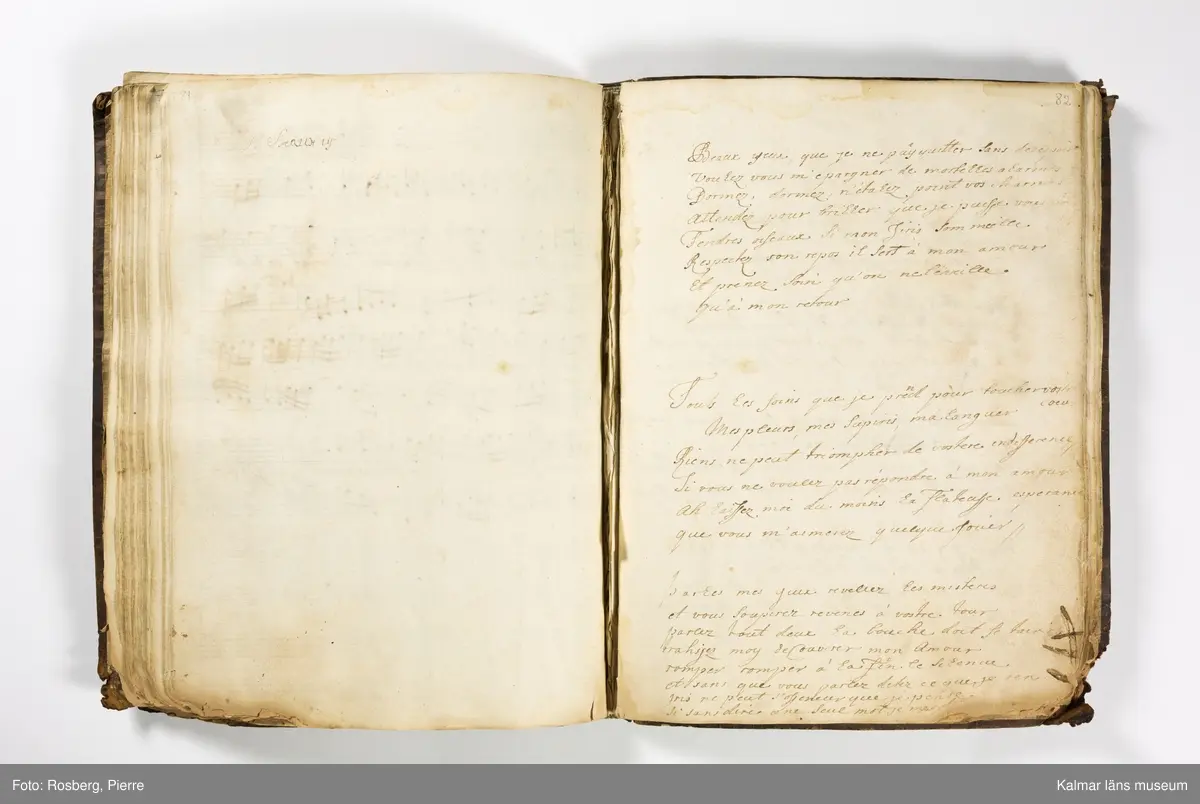 82
Beaux yeux que je ne puy quitter sans
Voulez vous m'epargner de mortelles alarmes
Dormez, dormez, n'étalez point vos charmes
Attendez pour briller que je puisse
Tendres oiseaux si mon Iris sommeille
Respectez son repos il sert à mon amour
Et prenez soin qu'on ne l'éveille.
qu'à mon retour
Tous les soins que je prent pour toucher vostre
Mes pleurs, mes supirs, ma languer coeu
Riens ne peut triompher de vostere indifference
Si vous ne voulez pas répondre à mon amour
Ah laissez moi du moins la flateuse esperance
que vous m'aimerez quelque jouier
Parles mes yeux revelez les misteres
et vous soupirez revenes à vostre tour
parlez tout deux la bouche doit se taire
trahisez moy descouvrer mon Amour
romper romper à la fin le silence
et sans que vous parlez ce que je
ne peut s'offencer que je pense
si sans dire une seul mot je
Foto: Rosberg, Pierre
Kalmar läns museum